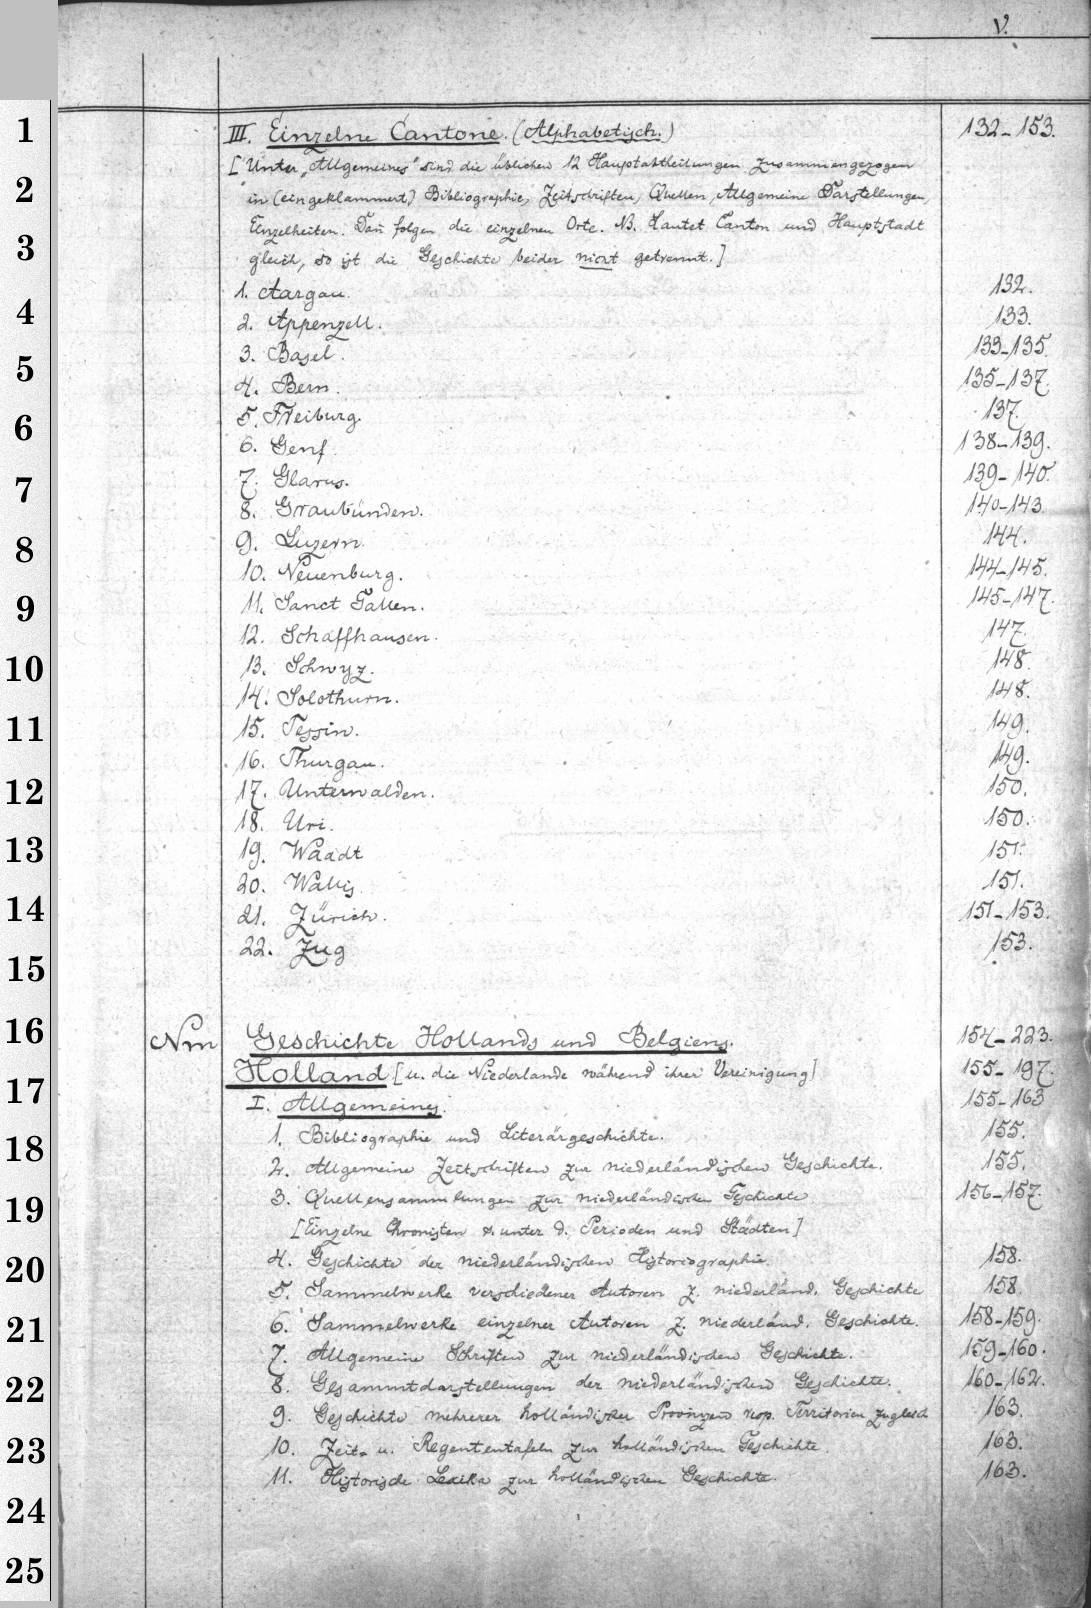 V.
III. Einzelne Cantone. (Alphabetisch.) 132-153.
[Unter „Allgemeines" sind die üblichen 12 Hauptabtheilungen zusammengezogen
in (eingeklammert) Bibliographie, Zeitschriften, Quellen, Allgemeine Darstellungen,
Einzelheiten. Dan̄ folgen die einzelnen Orte. NB. Lautet Canton und Hauptstadt
gleich, so ist die Geschichte beider nicht getrennt.]
1. Aargau. 132.
2. Appenzell. 133.
3. Basel. 133-135.
4. Bern. 135-137.
5. Freiburg. 137.
6. Genf. 138-139.
7. Glarus. 139-140.
8. Graubünden. 140-143.
9. Luzern. 144.
10. Neuenburg. 144-145.
11. Sanct Gallen. 145-147.
12. Schaffhausen. 147.
13. Schwyz. 148.
14. Solothurn. 148.
15. Tessin. 149.
16. Thurgau. 149.
17. Unterwalden. 150.
18. Uri. 150.
19. Waadt 151.
20. Wallis. 151.
21. Zürich. 151-153.
22. Zug 153.
Nm Geschichte Hollands und Belgiens. 154-223.
Holland [u. die Niederlande während ihrer Vereinigung] 155-197.
I. Allgemeines. 155-163
1. Bibliographie und Literärgeschichte. 155.
2. Allgemeine Zeitschriften zur niederländischen Geschichte. 155.
3. Quellensammlungen zur niederländischen Geschichte 156-157.
[Einzelne Chronisten s. unter d. Perioden und Städten]
4. Geschichte der niederländischen Historiographie. 158.
5. Sammelwerke verschiedener Autoren z. niederländ. Geschichte 158.
6. Sammelwerke einzelner Autoren z. niederländ. Geschichte. 158-159.
7. Allgemeine Schriften zur niederländischen Geschichte. 159-160.
8. Gesammtdarstellungen der niederländischen Geschichte. 160-162.
9. Geschichte mehrerer holländischer Provinzen resp. Territorien zugleich 163.
10. Zeit- u. Regententafeln zur holländischen Geschichte. 163.
11. Historische Lexika zur holländischen Geschichte. 163.
1
2
3
4
5
6
7
8
9
10
11
12
13
14
15
16
17
18
19
20
21
22
23
24
25